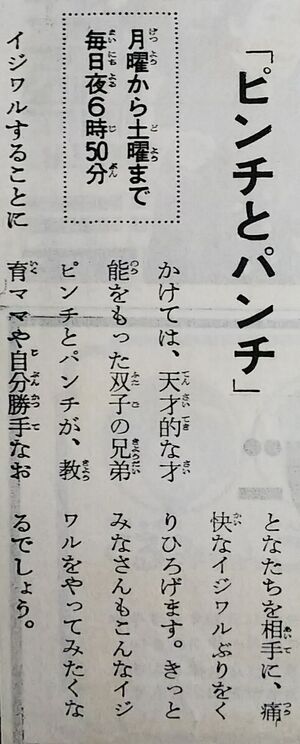 「ピンチとパンチ」
月曜から土曜まで
毎日夜6時50分
イジワルすることに
かけては、天才的な才
能をもった双子の兄弟
ピンチとパンチが、教
育ママや自分勝手なお
となたちを相手に、痛
快なイジワルぶりをく
りひろげます。きっと
みなさんもこんなイジ
ワルをやってみたくな
るでしょう。